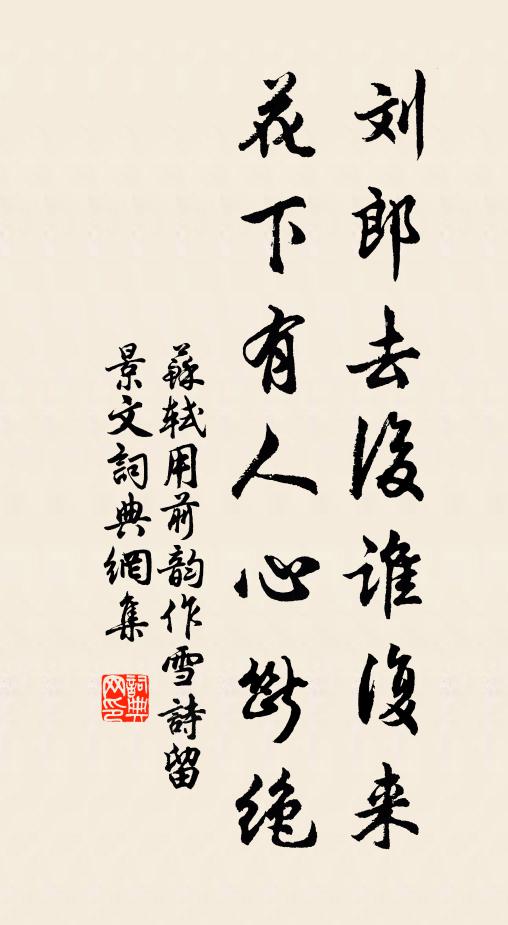 刘郎去後谁复来
花下有人心断绝
蘇轼用前韵作雪詩留
景文詞典網集
詞典
网印